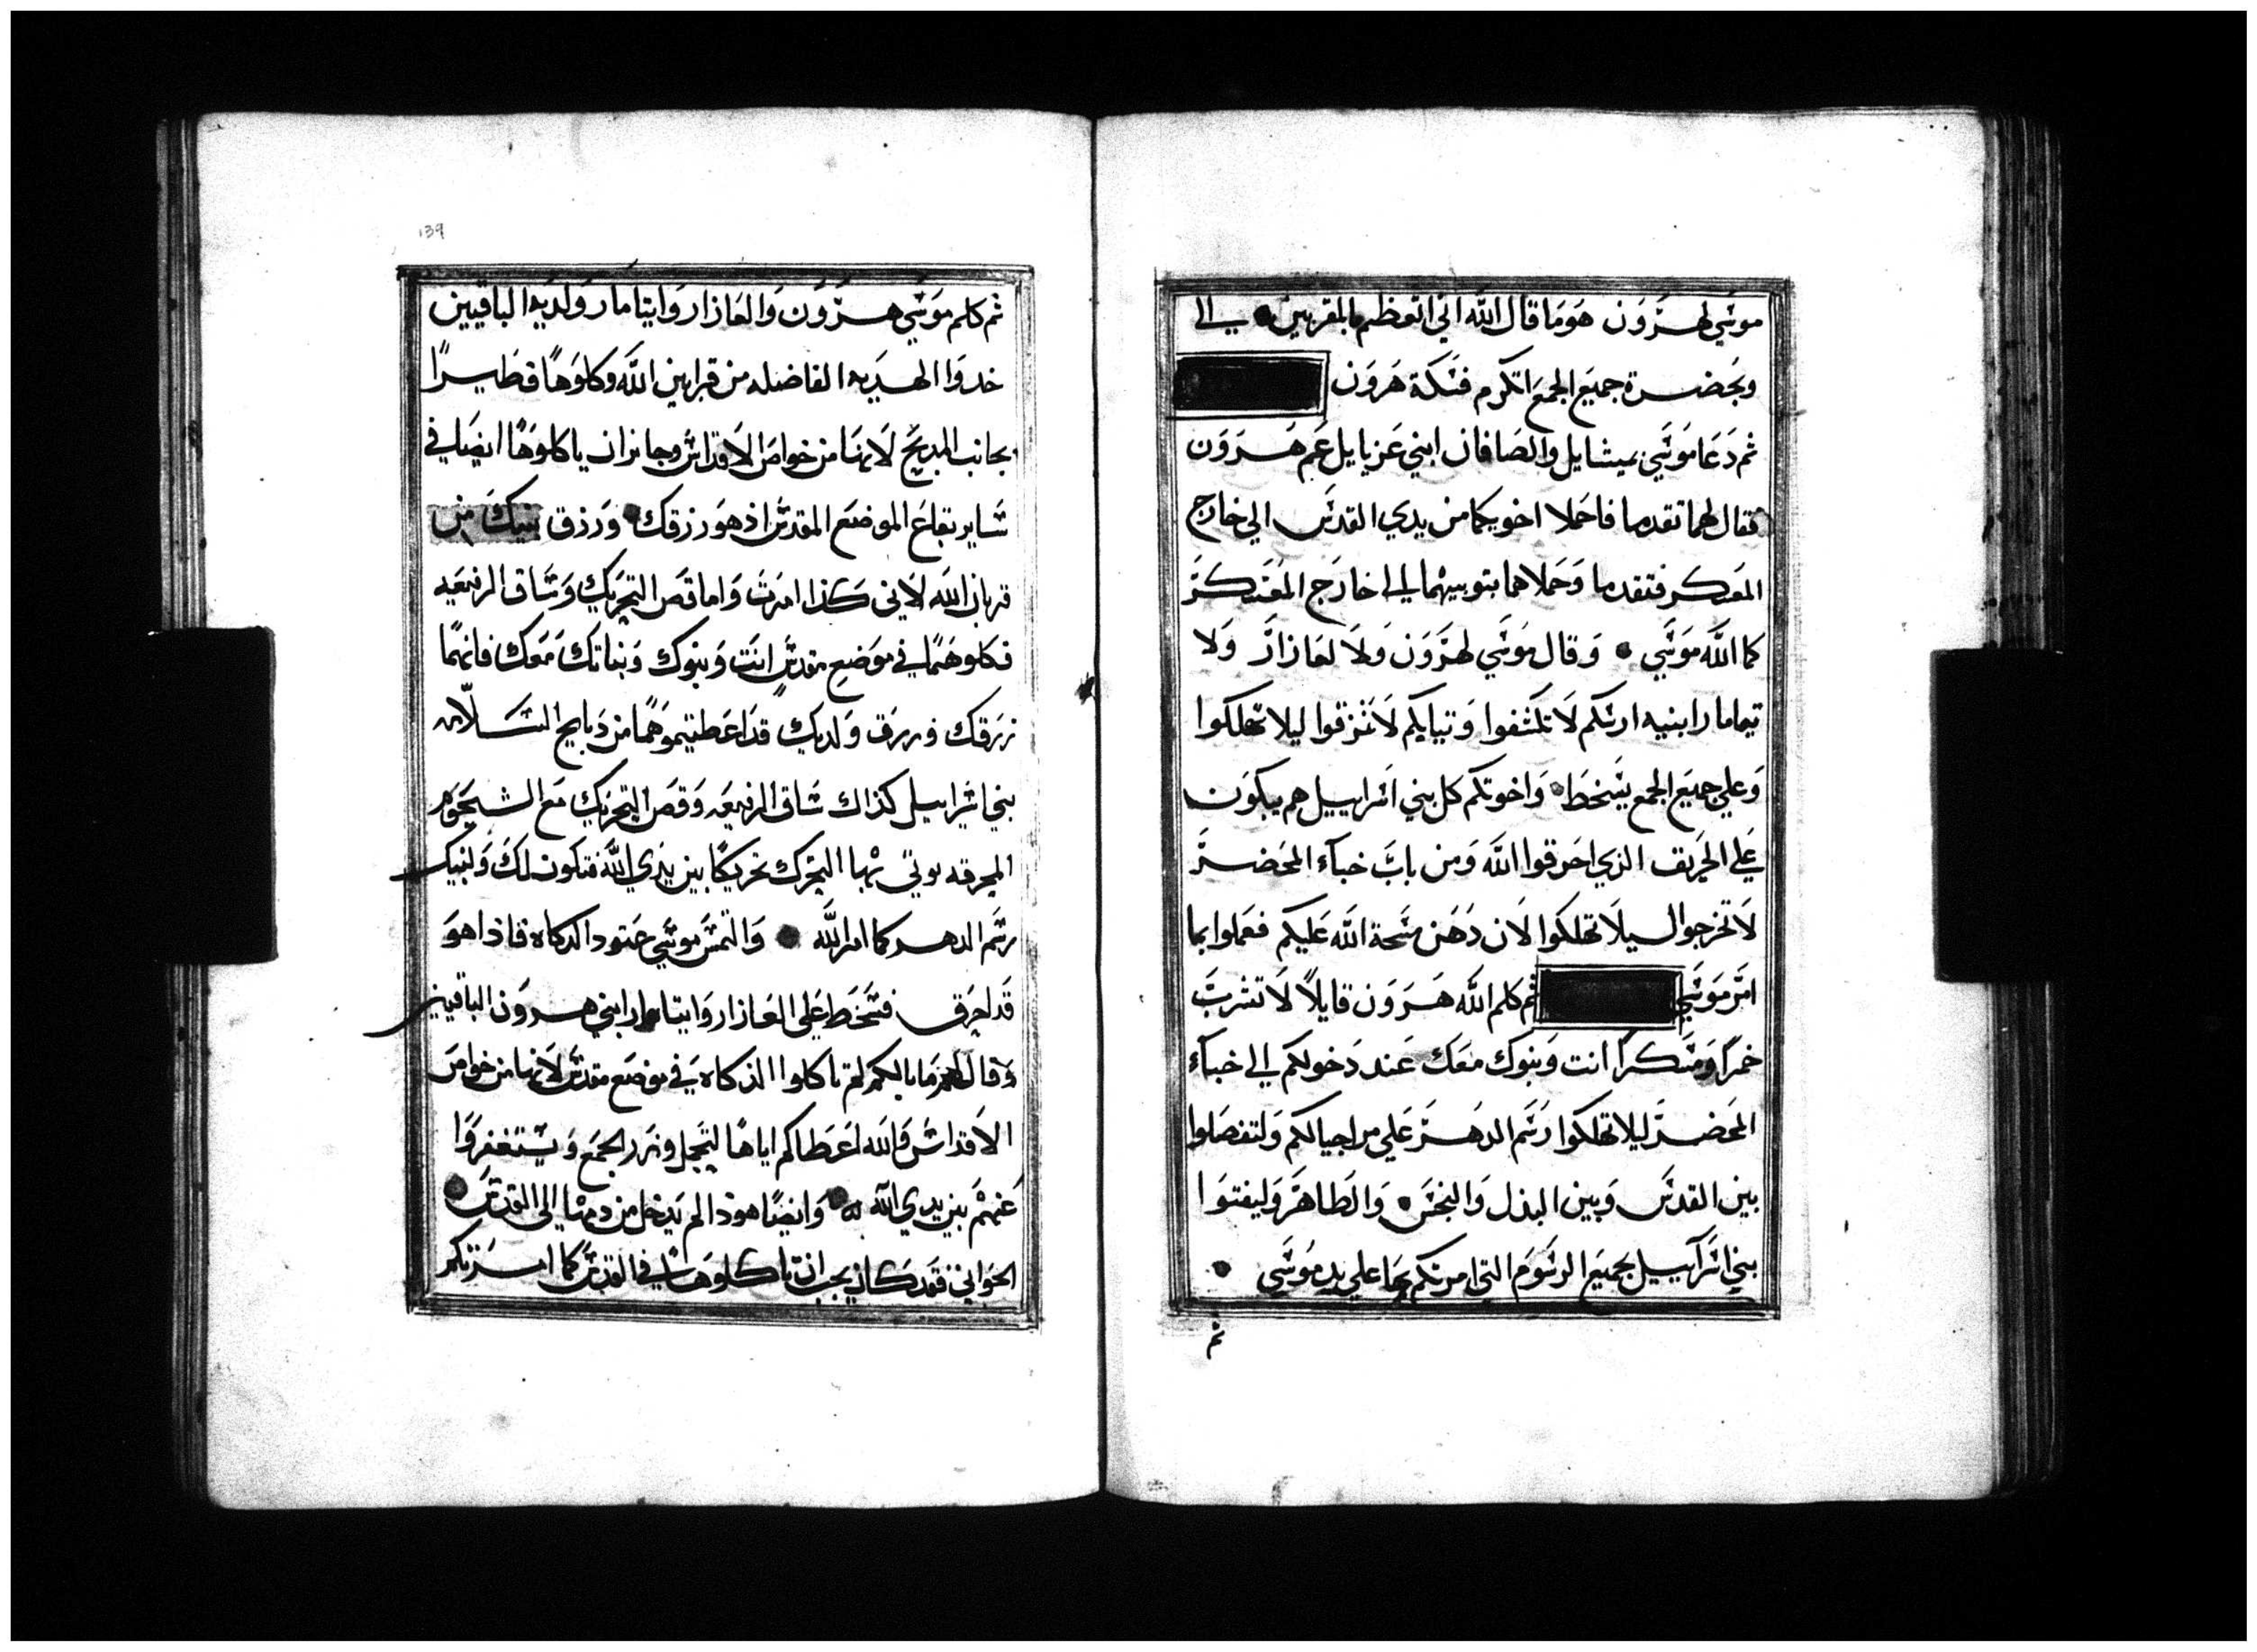 موسي لهرون هوما قال الله اني اتعظم بالمقربين الي
وبحضرة جميع الجمع اتكرم فسكت هرون
ثم دعا موسي ميشايل والصافان ابني عزيايل عم هرون
فقال لهما تقدما فاحملا اخويكما من يدي القدس الي خارج
المعسكر فتقدما وحملاهما بتوبيهما الي خارج المعسكر
كما الله موسي وقال موسي لهرون ولا لعازار ولا
تيمامار ابنيه ارسكم لا تكشفوا وتيابكم لا تمزقوا ليلا تهلكوا
وعلي جميع الجمع يسخط واخوتكم كل بني اسراييل هم يبكون
علي الحريق الذي احرقوا الله ومن باب خباء المحضر
لا تخرجوا ليلا تهلكوا لان دهن مسحة الله عليكم فعملوا بما
امر موسي ثم كلم الله هرون قايلا لا تشرب
خمرا ومسكرا انت وبنوك معك عند دخولكم الي خباء
المحضر ليلا تهلكوا رسم الدهر علي مر اجيالكم ولتفصلوا
بين القدس وبين البذل والنجس والطاهر وليفتوا
بني اسراييل بجميع الرسوم التي امرتكم بها علي يد موسي
ثم
139
ثم كلم موسي هرون والعازار وايتامار ولديه الباقيين
خدوا الهديه الفاضله من قرابين الله وكلوها فطيرا
بجانب المدبح لانها من خواص الاقداس وجايز ان ياكلوها ايضا في
ساير بقاع الموضع المقدس اذ هو رزقك ورزق بنيك من
قربان الله لاني كذا امرت واما قص التحريك وساق الرفيعه
فكلوهما في موضع مقدس انت وبنوك وبناتك معك فانهما
رزقك ورزق ولديك قد اعطيتموهما من دبايح السلامه
بني اسراييل كذاك ساق الرفيعه وقص التحريك مع الشحوم
المحرقه يوتي بها التحرك تحريكا بين يدي الله فتكون لك ولبنيك
رسم الدهر كما امر الله والتمس موسي عتود الدكاه فاذا هو
قد احرق فسخط علي العازار وايتامار ابني هرون الباقيين
وقال لهم ما بالكم لم تاكلوا الذكاه في موضع مقدس لانها من خواص
الاقداس والله اعطاكم اياها لتحمل وزر الجمع ويستغفروا
عنهم بين يدي الله وايضا هوذا لم يدخل من دمها الي القدس
الجواني فقد كان يجب ان تاكلوها في القدس كما امرتكم